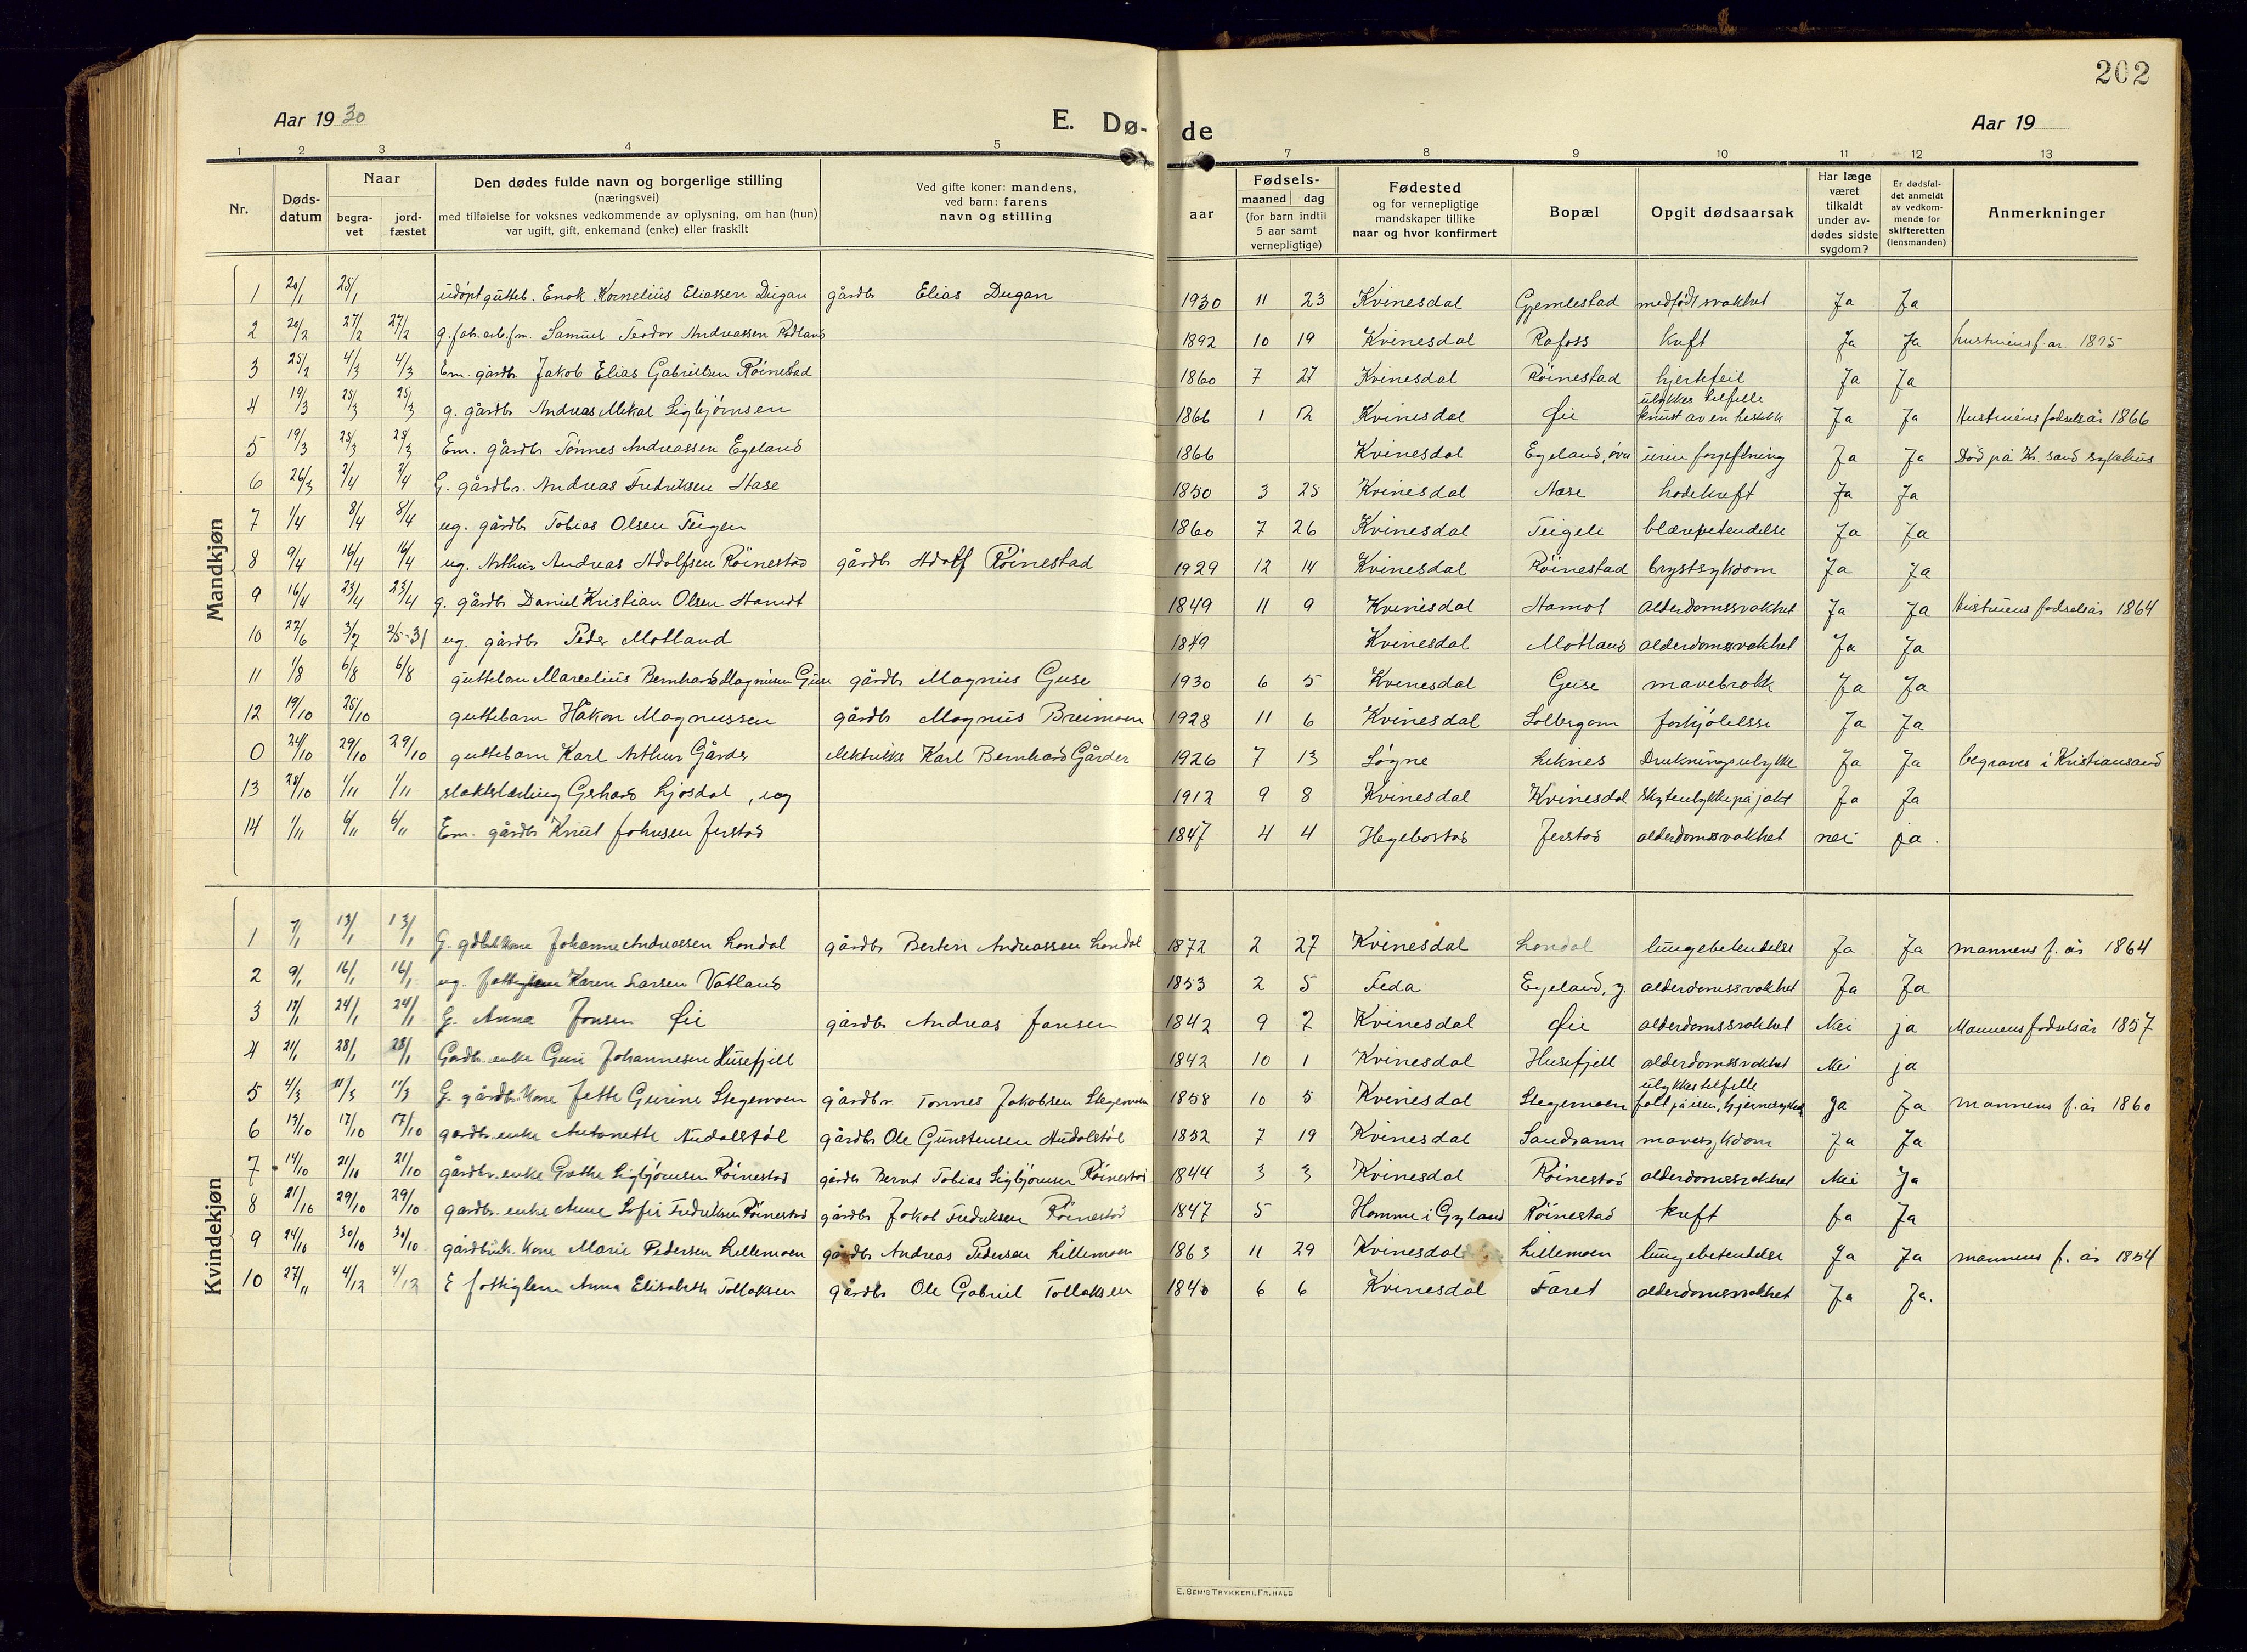 202
Aar 1930
E. Dø-
de
Aar 19
1 2 3 4 5 7 8 9 10 11 12 13
Nr.
Døds-
datum
Naar
begra-
vet
jord-
fæstet
Den dødes fulde navn og borgerlige stilling
(næringsvei)
med tilføielse for voksnes vedkommende av oplysning, om han (hun)
var ugift, gift, enkemand (enke) eller fraskilt
Ved gifte koner: mandens,
ved barn: farens
navn og stilling
aar
Fødsels-
maaned dag
(for barn indtil
5 aar samt
vernepligtige)
Fødested
og for vernepligtige
mandskaper tillike
naar og hvor konfirmert
Bopæl
Opgit dødsaarsak
Har læge
været
tilkaldt
under av-
dødes sidste
sygdom?
Er dødsfal-
det anmeldt
av vedkom-
mende for
skifteretten
(lensmanden)
Anmerkninger
Mandkjøn
1 20/1 25/1 udøpt gutteb. Enok Kornelius Eliassen Dugan gårdbr Elias Dugan 1930 11 23 Kvinesdal Gjemlestad medfødt svakhet Ja Ja
2 20/2 27/2 27/2 g. fab. arb. fm. Samuel Teodor Andreassen Rødland 1892 10 19 Kvinesdal Rafoss kreft Ja Ja hustruens f. ar. 1895
3 25/2 4/3 4/3 Em. gårdbr Jakob Elias Gabrielsen Röinestad 1860 7 27 Kvinesdal Röinestad hjertefeil Ja Ja
4 19/3 25/3 25/3 g. gårdbr Andreas Mikal Sigbjörnsen 1866 1 12 Kvinesdal Øie ulykkes tilfelle
knust av en Ja Ja Hustruens fødselsår 1866
5 19/3 25/3 25/3 Em. gårdbr Tönnes Andreassen Egeland 1866 Kvinesdal Egeland, övre urin forgiftning Ja Ja Död på Kr. sand sykehus
6 26/3 2/4 2/4 G. gårdbr. Andreas Fredriksen Aase 1850 3 25 Kvinesdal Aase hodekreft Ja Ja
7 1/4 8/4 8/4 ug. gårdbr Tobias Olsen Teigen 1860 7 26 Kvinesdal Teigeli blærebetendelse Ja Ja
8 9/4 16/4 16/4 ug. Arthur Andreas Adolfsen Röinestad gårdbr Adolf Röinestad 1929 12 14 Kvinesdal Röinestad brystsykdom Ja Ja
9 16/4 23/4 23/4 g. gårdbr Daniel Kristian Olsen Hamot 1849 11 9 Kvinesdal Hamot Alderdomssvakhet Ja Ja Hustruens fødselsår 1864
10 27/6 3/7 2/5-31 ug. gårdbr Peder Motland 1849 Kvinesdal Motland alderdomssvakhet Ja Ja
11 1/8 6/8 6/8 guttebarn Marcelius Bernhard Magnusen Guse gårdbr Magnus Guse 1930 6 5 Kvinesdal Guse mavebrokk Ja Ja
12 19/10 25/10 guttebarn Håkon Magnussen gårdbr Magnus Breimoen 1928 11 6 Kvinesdal forkjölelse Ja Ja
0 24/10 29/10 29/10 guttebarn Karl Arthur Gårder elektriker Karl Bernhard Gårder 1926 7 13 Søgne Liknes Drukningsulykke Ja Ja begraves i Kristiansand
13 28/10 1/11 1/11 slakterlærling Gerhard Ljosdal, ug 1912 9 8 Kvinesdal Kvinesdal Skyteulykke på jakt Ja Ja
14 1/11 6/11 6/11 Em. gårdbr Knut Johnsen Jerstad 1847 4 4 Hegebostad Jerstad alderdomssvakhet nei ja.
Kvindekjøn
1 7/1 13/1 13/1 G. gdbr. kone Johanne Andreassen Londal gårdbr Bertin Andreassen Londal 1872 2 27 Kvinesdal Londal lungebetendelse Ja Ja mannens f. år 1864
2 9/1 16/1 16/1 ug. fattiglem Karen Larsen Vatland 1853 2 5 Feda Egeland, y. alderdomssvakhet Ja Ja
3 17/1 24/1 24/1 G. Anna Jonsen Øie gårdbr Andreas Jansen 1842 9 7 Kvinesdal Øie alderdomssvakhet Nei ja Mannens fødselsår 1857
4 21/1 28/1 28/1 Gårdbr. enke Guri Johannesen Husefjell 1842 10 1 Kvinesdal Husefjell alderdomssvakhet Nei ja
5 4/3 11/3 11/3 G. gårdbr. kone Jette Geirine Stegemoen gårdbr. Tønnes Jakobsen Stegemoen 1858 10 5 Kvinesdal Stegemoen ulykkestilfelle
falt på isen, hjernerystelse Ja Ja mannens f. år 1860
6 13/10 17/10 17/10 gårdbr. enke Antonette Audalstöl gårdbr Ole Gunstensen Audalstöl 1852 7 19 Kvinesdal Sandvann mavesykdom Ja Ja
7 14/10 21/10 21/10 gårdbr. enke Grethe Sigbjörnsen Röinestad gårdbr Bernt Tobias Sigbjörnsen Röinestad 1844 3 3 Kvinesdal Röinestad alderdomssvakhet Nei Ja
8 21/10 29/10 29/10 gårdbr. enke Anne Sofie Fredriksen Röinestad gårdbr Jakob Fredriksen Röinestad 1847 5 Homme i Gyland Röinestad kreft ja Ja
9 24/10 30/10 30/10 gårdbruk. kone Marie Pedersen Lillemoen gårdbr Andreas Pedersen Lillemoen 1863 11 29 Kvinesdal Lillemoen lungebetendelse Ja Ja mannens f. år 1854
10 27/11 4/12 4/12 E fattiglem Anna Elisabeth Tollaksen gårdbr Ole Gabriel Tollaksen 1840 6 6 Kvinesdal Faret alderdomssvakhet Ja Ja.
E. SEM'S TRYKKERI, FR. HALD